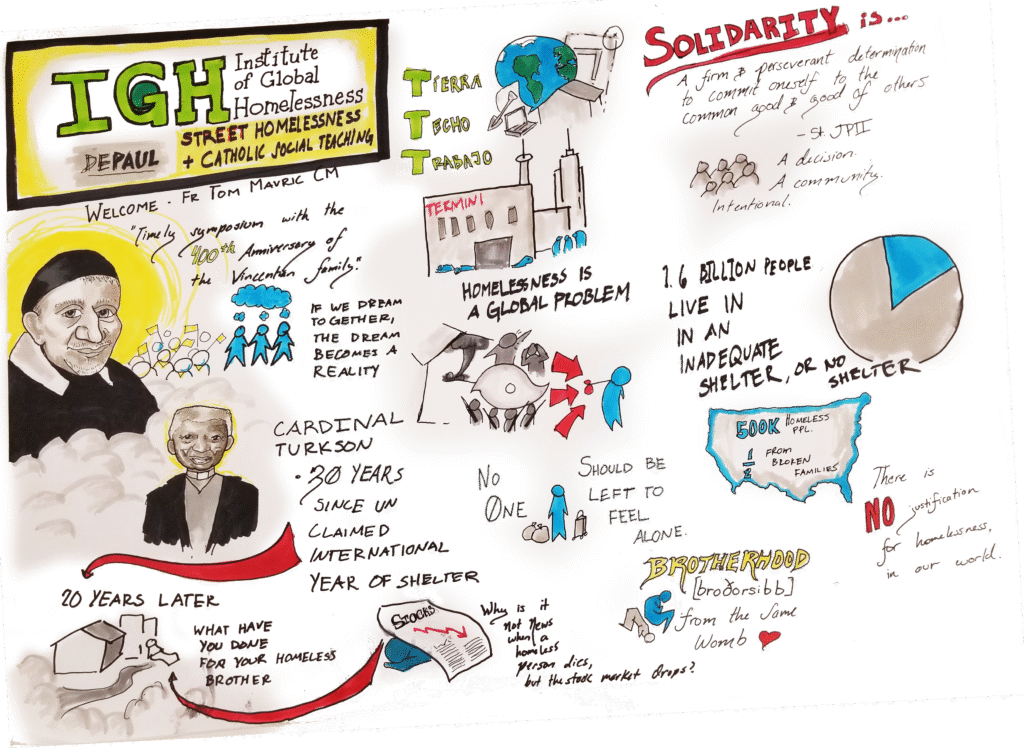 IGH Institute
of Global
Homelessness
STREET HOMELESSNESS
+ CATHOLIC SOCIAL TEACHING
DEPAUL
WELCOME - FR TOM MAVRIC CM
"Timely symposium with the
400th Anniversary of
the Vincentian family."
IF WE DREAM
TOGETHER,
THE DREAM
BECOMES A
REALITY
CARDINAL
TURKSON
• 30 YEARS
SINCE UN
CLAIMED
INTERNATIONAL
YEAR OF SHELTER
20 YEARS LATER
WHAT HAVE
YOU DONE
FOR YOUR HOMELESS
BROTHER
STOCKS
Why is it
not news
when a
homeless
person dies,
but the stock market drops?
TIERRA
TECHO
TRABAJO
TERMINI
HOMELESSNESS IS
A GLOBAL PROBLEM
NO
ONE
SHOULD BE
LEFT TO
FEEL
ALONE.
SOLIDARITY is...
A firm & perseverant determination
to commit oneself to the
common good & good of others
- St. JPII
A decision.
A community.
Intentional.
1.6 BILLION PEOPLE
LIVE IN
IN AN
INADEQUATE
SHELTER, OR NO
SHELTER
500K HOMELESS
PPL.
1/2 FROM
BROKEN
FAMILIES
There is
NO justification
for homelessness,
in our world.
BROTHERHOOD
[broðorsibb]
from the same
Womb